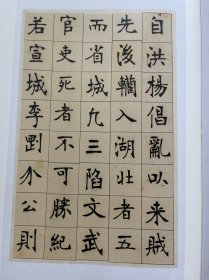 自洪楊倡亂以来賊
先後䡮入湖壮者五
而省城凢三陷文武
官吏死者不可勝紀
若宣城李剛介公則